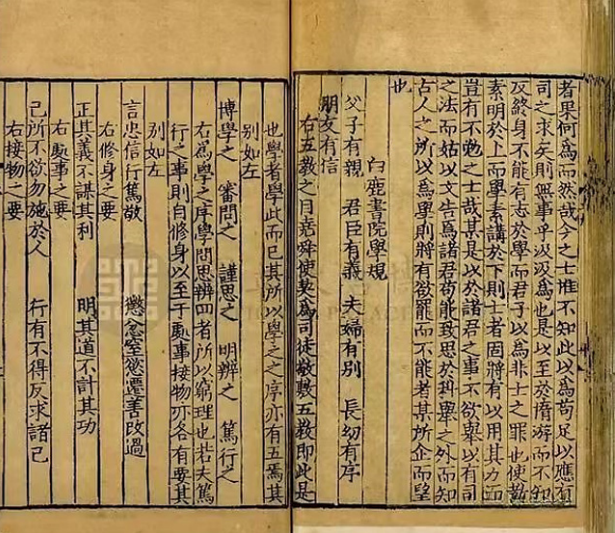 者果何為而然哉今之士惟不知此以為苟足以應有
司之求矣則無事乎汲汲為也是以至於惰游而不知
反終身不能有志於學而君子以為非士之罪也使教
素明於上而學素講於下則士者固將有以用其力而
豈有不勉之士哉某是以於諸君之事不欲舉以有司
之法而姑以文告焉諸君苟能致思於科舉之外而知
古人之所以為學則將有欲罷而不能者某所企而望
也
白鹿書院學規
父子有親　君臣有義　夫婦有別　長幼有序
朋友有信
右五教之目堯舜使契為司徒敬敷五教即此是
也學者學此而已其所以學之之序亦有五焉其
別如左
博學之　審問之　謹思之　明辨之　篤行之
右為學之序學問思辨四者所以窮理也若夫篤
行之事則自修身以至于處事接物亦各有要其
別如左
言忠信行篤敬　懲忿窒慾遷善改過
右修身之要
正其義不謀其利　明其道不計其功
右處事之要
己所不欲勿施於人　行有不得反求諸己
右接物之要